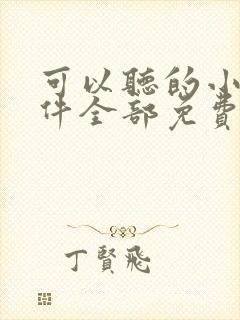 可以聽的小
件全部免費
丁賢飛